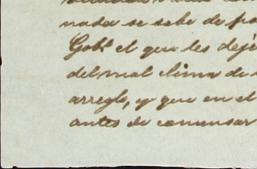 nada se sabe de
Gobº el que les
del mal clima de
arreglo, y que en el
antes de comensar